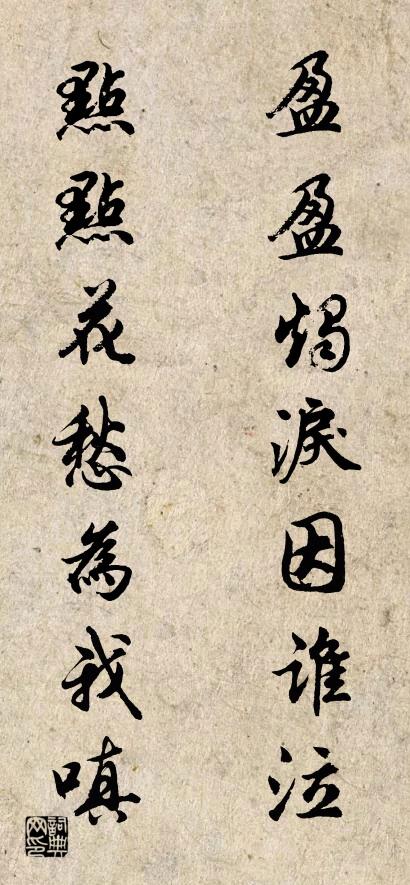 盈盈燭淚因誰泣
點點花愁為我嗔
詞典网印